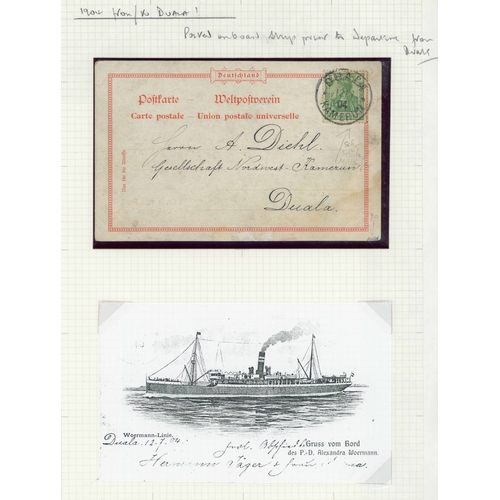 1904 from/to DUALA!
Posted onboard ships prior to departure from
Duala
Deutschland
Postkarte — Weltpostverein
Carte postale — Union postale universelle
DUALA
04
KAMERUN
Herrn A. Diehl
Gesellschaft Nordwest-Kamerun
Duala.
Woermann-Linie.
Duala 12.7.04.
Gruss vom Bord
des P.-D. Alexandra Woermann.
Hermann Jäger &